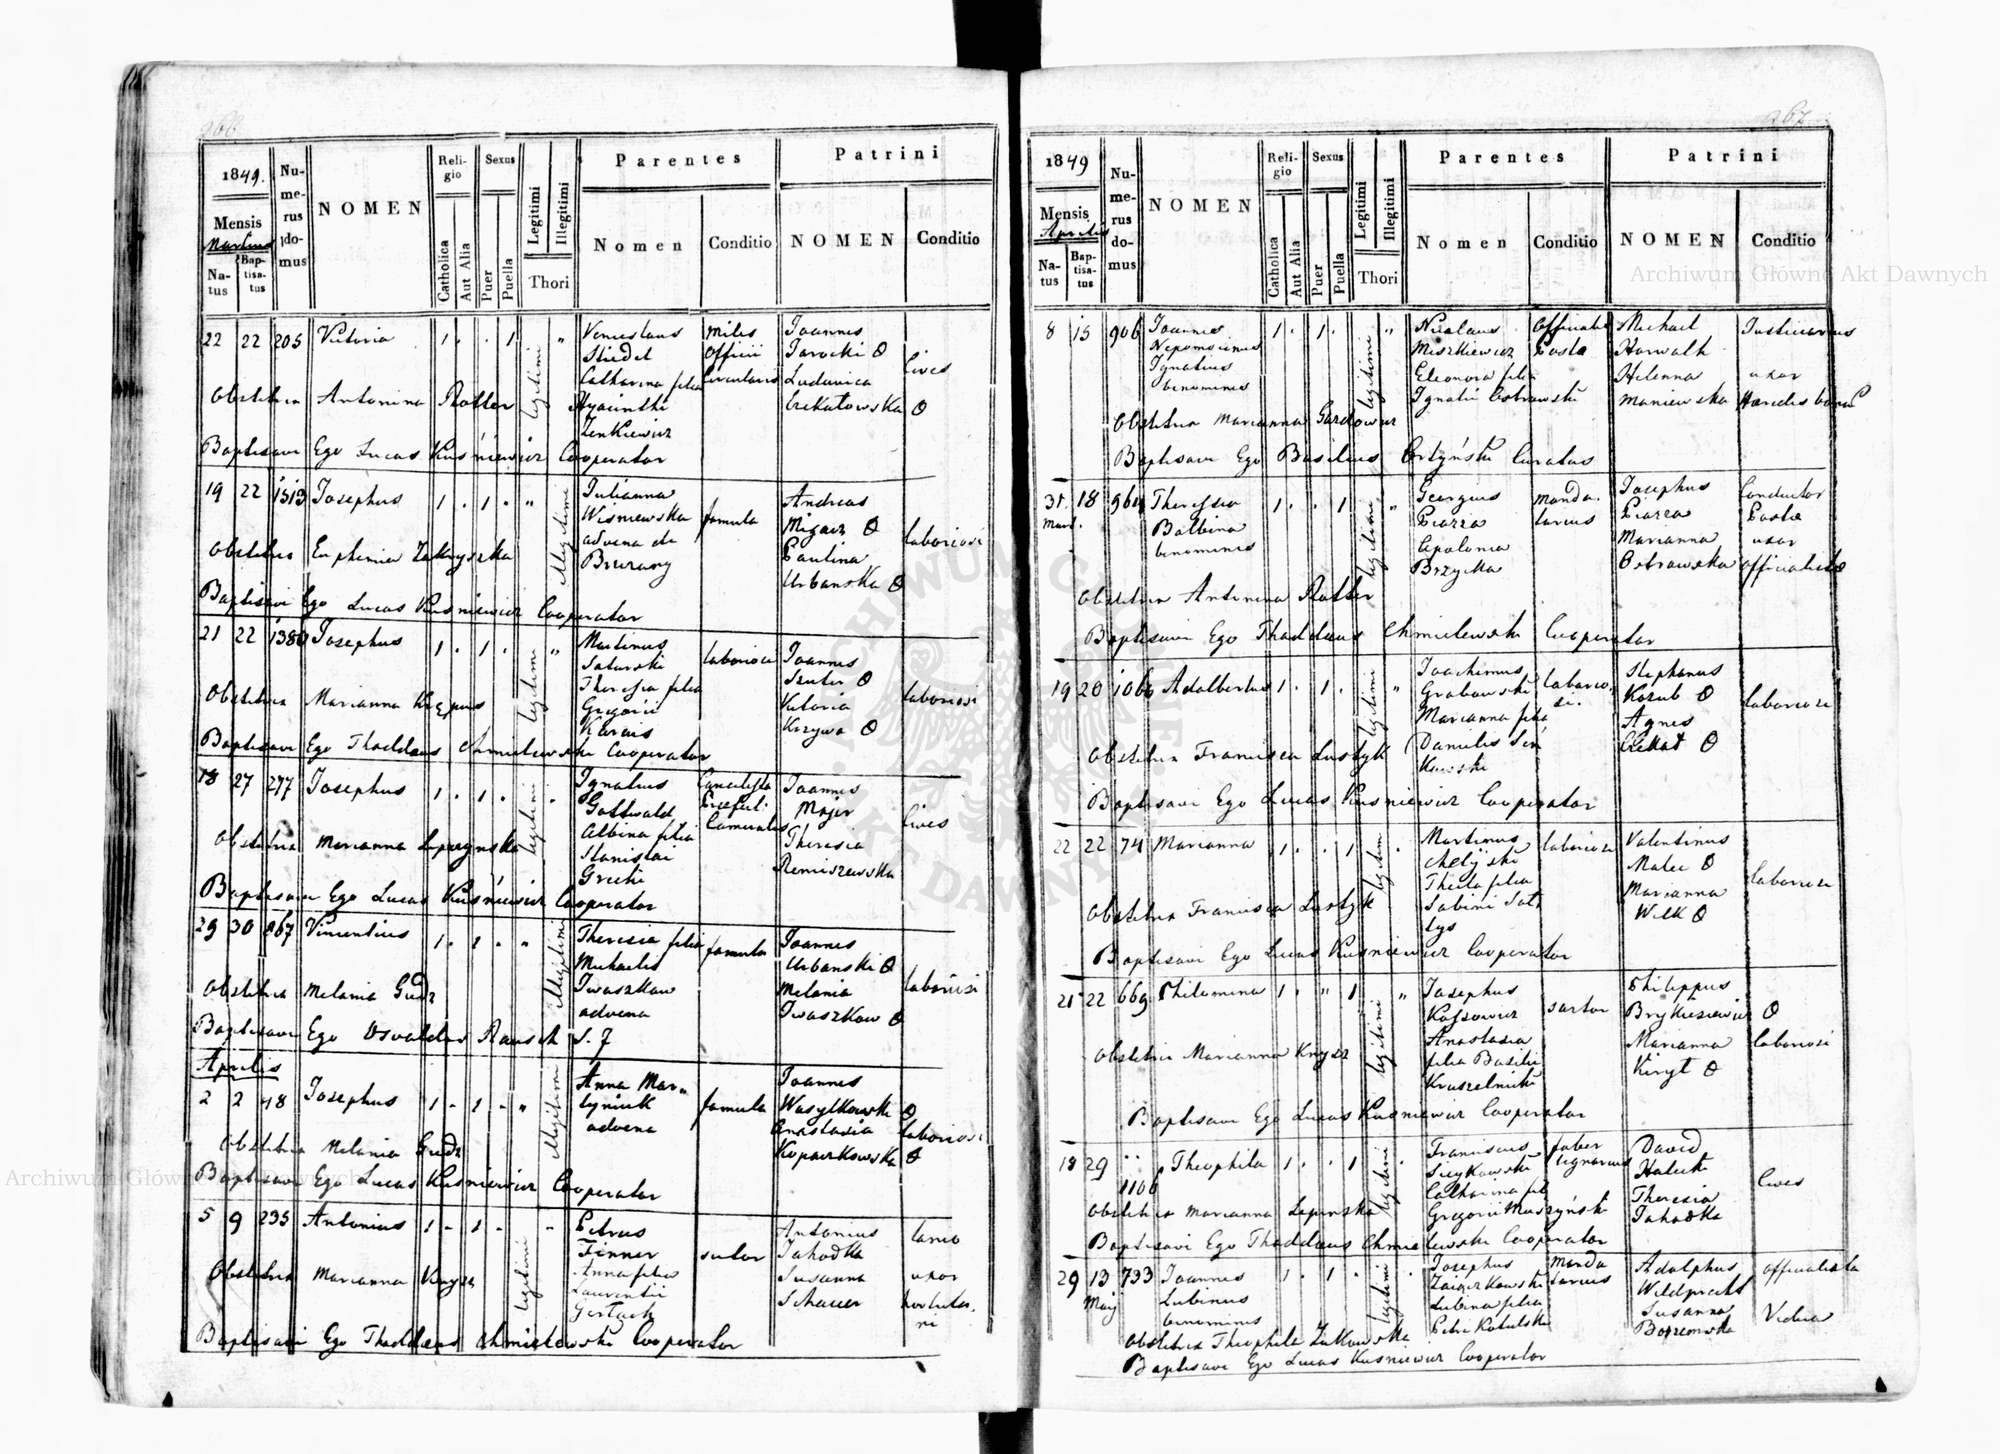 266
1849.
Mensis
Martius
Na-
tus
Bap-
tisa-
tus
Nu-
me-
rus
do-
mus
NOMEN
Reli-
gio
Catholica
Aut Alia
Sexus
Puer
Puella
Legitimi
Illegitimi
Thori
Parentes
Nomen
Conditio
Patrini
NOMEN
Conditio
22 22 205 Victoria 1 . . 1 legitimi " Venceslaus miles Joannes
Officii Jarocki O
Catharina filia Circularis Ludovica Cives
Obstetrix Antonina Rotter Hyacinthi O
Zenkiewicz
Baptisavi Ego Lucas Kuśniewicz Cooperator
19 22 1313 Josephus 1 . 1 . " illegitimi Julianna Andreas
Wiśniewska famula O laboriosi
advena de Paulina
Obstetrix Euphimia Brzezany Urbanska O
Baptisavi Ego Lucas Kuśniewicz Cooperator
21 22 1380 Josephus 1 . 1 . legitimi " Martinus laboriosi Joannes
Szuter O
Theresia filia Victoria laboriosi
Obstetrix Marianna Gregorii Krzywa O
Baptisavi Ego Thaddaeus Chmielewski Cooperator
18 27 277 Josephus 1 . 1 . legitimi . Ignatius Joannes
Gottwald Majer Cives
Albina filia Cameralis Theresia
Obstetrix Marianna Lepszynska Stanislai Remiszewska
Baptisavi Ego Lucas Kuśniewicz Cooperator
29 30 867 Vincentius 1 . 1 . " illegitimi Theresia filia famula Joannes
Michaelis Urbanski O
Obstetrix Melania Gudz Iwaszkow Melania laboriosi
advena Iwaszkow O
Baptisavi Ego Osvaldus Rausch S. J
Aprilis
2 2 48 Josephus 1 - 1 - " illegitimi Anna Mar" famula Joannes
tyniuk Wasylkowski O
advena Anastasia laboriosi
Obstetrix Melania Gudz Kopaczkowska O
Baptisavi Ego Lucas Kuśniewicz Cooperator
5 9 235 Antonius 1 - 1 - legitimi " Petrus Antonius lanio
Finner sutor Jahodka
Obstetrix Marianna Knysz Anna filia Susanna uxor
Laurentii Schauer hortula.
Gerlach ni
Baptisavi Ego Thaddaeus Chmielewski Cooperator
267
1849
Mensis
Aprilis
Na-
tus
Bap-
tisa-
tus
Nu-
me-
rus
do-
mus
NOMEN
Reli-
gio
Catholica
Aut Alia
Sexus
Puer
Puella
Legitimi
Illegitimi
Thori
Parentes
Nomen
Conditio
Patrini
NOMEN
Conditio
8 15 906 Joannes 1 . 1 . legitimi " Nicolaus Michael Justiciarius
Nepomucenus Miszkiewicz Postae Horwath
Ignatius Eleonora filia Helenna uxor
binominis Ignatii Ostrowski Maniewska
Obstetrix Marianna
Baptisavi Ego Basilius Ortyński Curatus
31. 18 964 Theressia 1 . . 1 legitimi " Georgius manda- Josephus Conductor
Mart. Balbina Piazza tarius Piazza Postae
binominis Apolonia Marianna uxor
Brzycka Ostrowska officialistae
Obstetrix Antonina Rotter
Baptisavi Ego Thaddaeus Chmielewski Cooperator
19 20 1066 Adalbertus 1 . 1 . legitimi " Joachimus laborio- Stephanus
Grabowski si. Kozub O laboriosi
Marianna filia Agnes
Obstetrix Francisca Lustyk Danielis Sien O
kowski
Baptisavi Ego Lucas Kuśniewicz Cooperator
22 22 74 Marianna 1 . . 1 legitimi . Martinus laboriosi Valentinus
Malec O
Thecla filia Marianna laboriosi
Obstetrix Francisca Lustyk Sabini Wilk O
Baptisavi Ego Lucas Kuśniewicz Cooperator
21 22 669 Philomena 1 . " 1 legitimi " Josephus sartor Philippus
Kossowicz O
Anastasia Marianna laboriosi
Obstetrix Marianna Knysz filia Basilii Kiryt O
Kruszelnicki
Baptisavi Ego Lucas Kuśniewicz Cooperator
18 29 1106 Theophila 1 . . 1 legitimi . Franciscus faber David
lignarius
Catharina fil Theresia Cives
Obstetrix Marianna Lepinska Gregorii Muszyński Jahodka
Baptisavi Ego Thaddaeus Chmielewski Cooperator
29 13 733 Joannes 1 . 1 . legitimi . Josephus manda Adolphus officialista
Maij Lubinus Zaiączkowski tarius Wildpreth
binominis Lubina filia Susanna Vidua
Petri Kobulski
Obstetrix Theophila Zutkowska
Baptisavi Ego Lucas Kuśniewicz Cooperator
Archiwum Główne Akt Dawnych
Archiwum Główne Akt Dawnych
ARCHIWUM GŁÓWNE AKT DAWNYCH